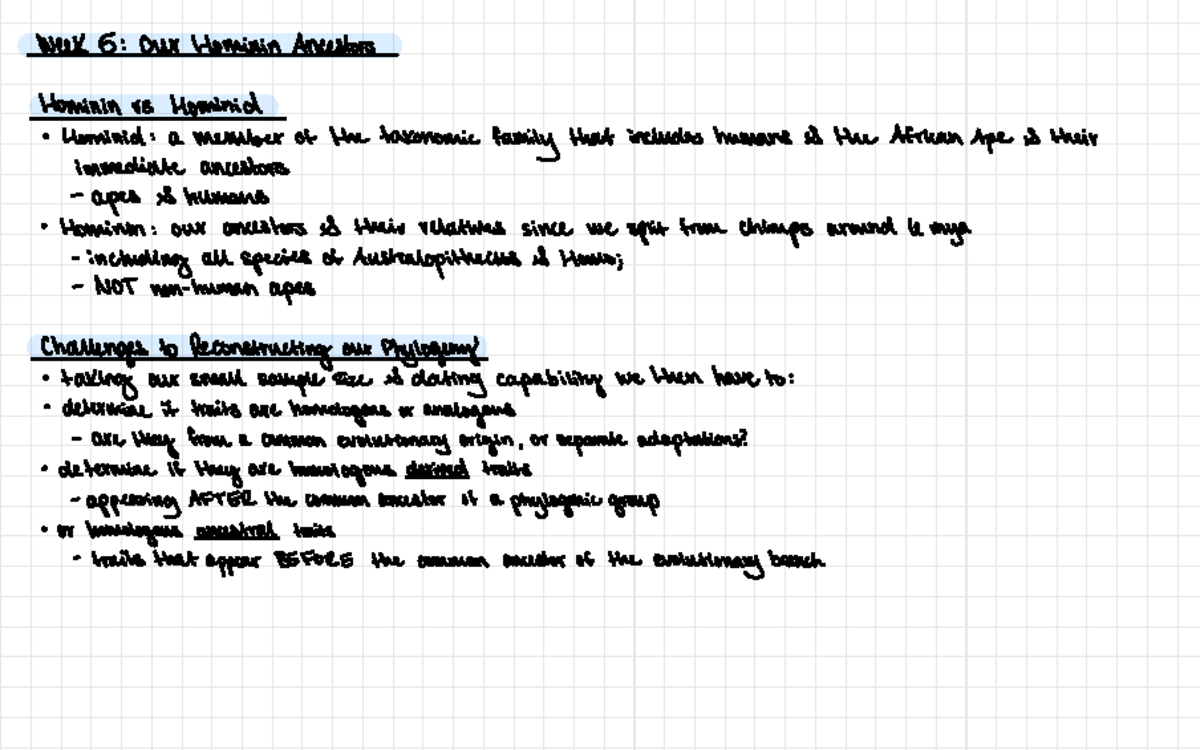 Week 6: Our Hominin Ancestors
Hominin vs Hominid
• Hominid: a member of the taxonomic family that includes humans & the African Ape & their
immediate ancestors
- apes & humans
• Hominin: our ancestors & their relatives since we split from chimps around 6 mya
- including all species of Australopithecus & Homo;
- NOT non-human apes
Challenges to Reconstructing our Phylogeny
• taking our small sample size & dating capability we then have to:
• determine if traits are homologous or analogous
- are they from a common evolutionary origin, or separate adaptations?
• determine if they are homologous derived traits
- appearing AFTER the common ancestor of a phylogenic group
• or homologous ancestral traits
- traits that appear BEFORE the common ancestor of the evolutionary branch